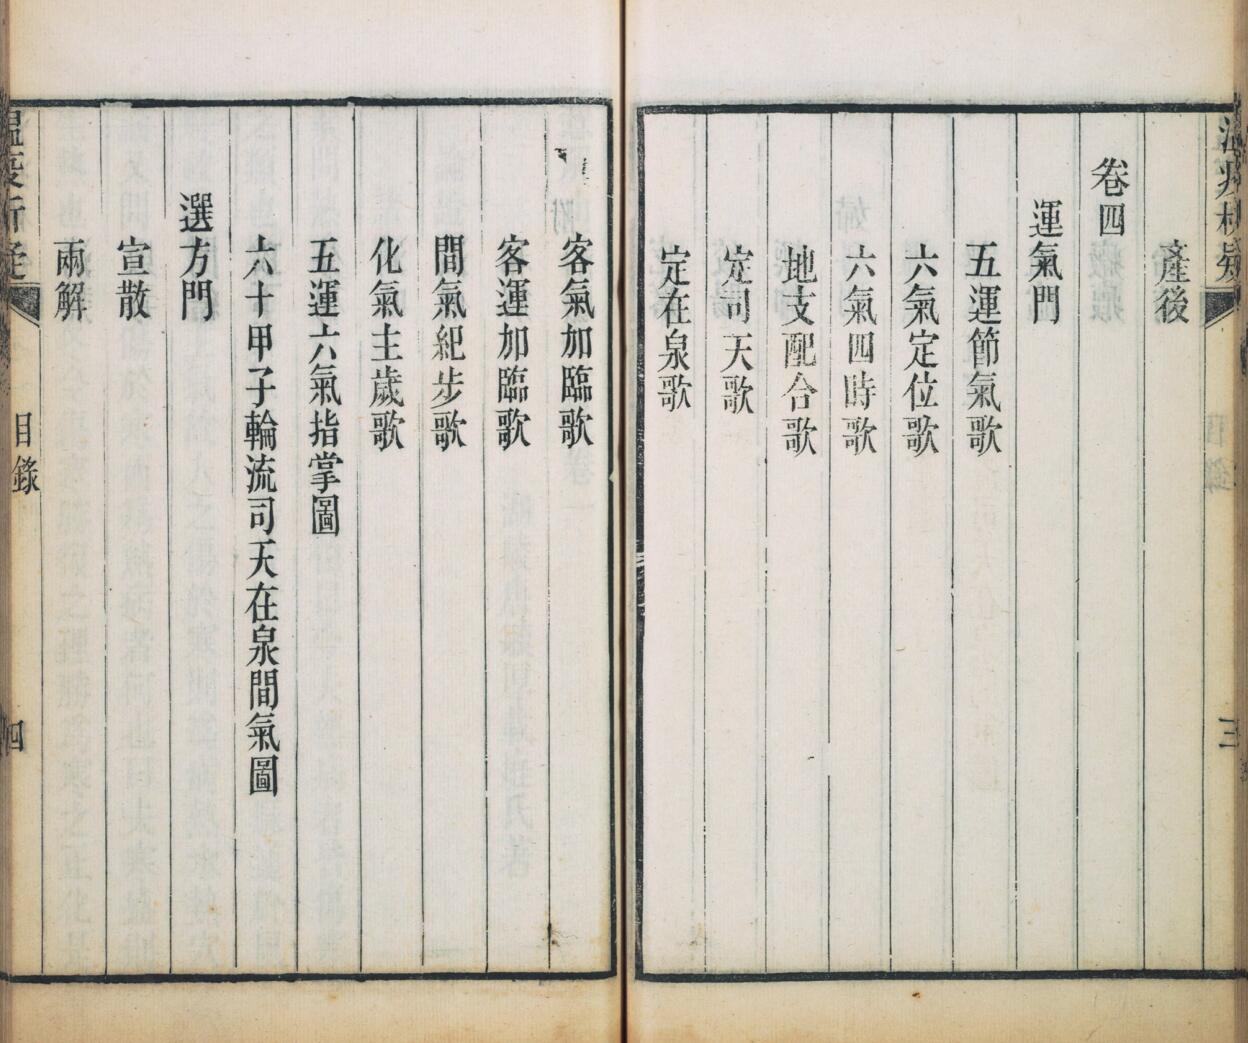 產後
卷四
運氣門
五運節氣歌
六氣定位歌
六氣四時歌
地支配合歌
定司天歌
定在泉歌
客氣加臨歌
客運加臨歌
間氣紀步歌
化氣主歲歌
五運六氣指掌圖
六十甲子輪流司天在泉間氣圖
選方門
宣散
兩解
目錄
四